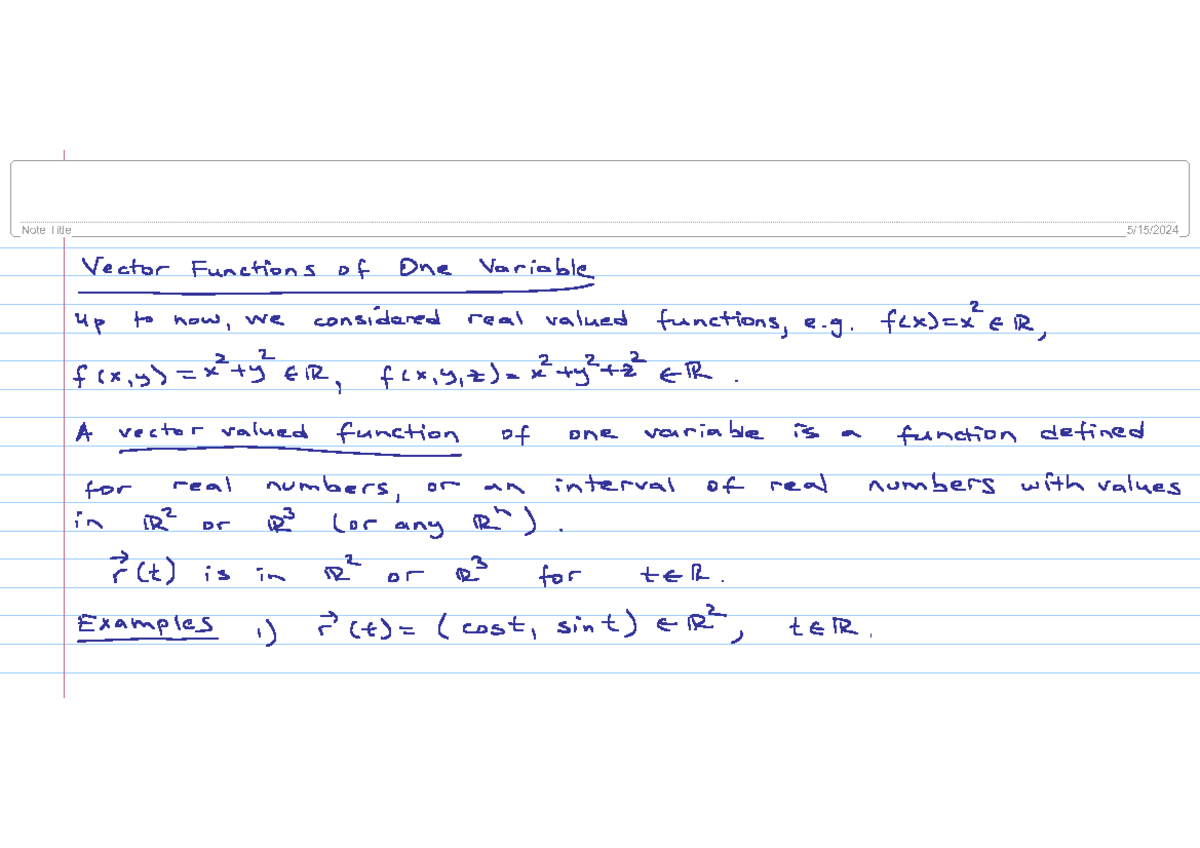 Note Title
5/15/2024
Vector Functions of One Variable
Up to now, we considered real valued functions, e.g. f(x)=x² ∈ ℝ,
f(x,y) = x²+y² ∈ ℝ, f(x,y,z) = x²+y²+z² ∈ ℝ.
A vector valued function of one variable is a function defined
for real numbers, or an interval of real numbers with values
in ℝ² or ℝ³ (or any ℝⁿ).
r⃗(t) is in ℝ² or ℝ³ for t∈ℝ.
Examples 1) r⃗(t) = (cost, sint) ∈ ℝ², t∈ℝ.